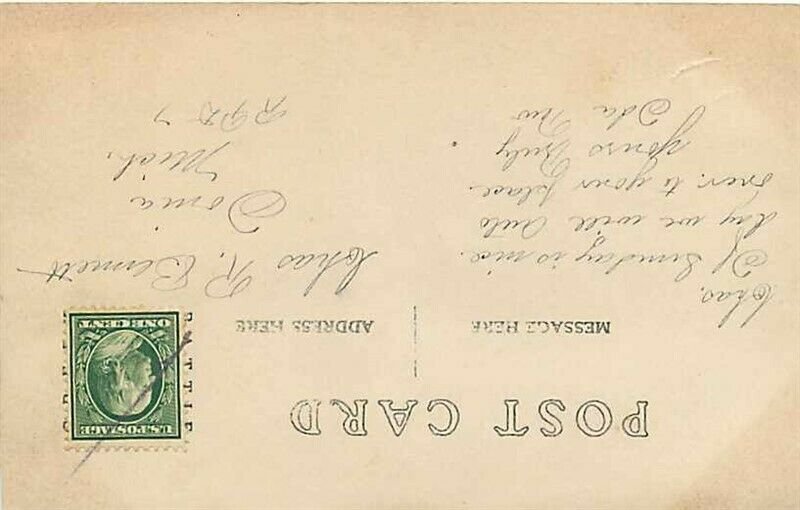 POST CARD
MESSAGE HERE
ADDRESS HERE
Chas.
If Sunday is nice
day we will Auto
over to your place.
Yours Truly
Ida
Chas R. Bennett
Ionia
Mich.
R F D 7
U.S. POSTAGE
ONE CENT